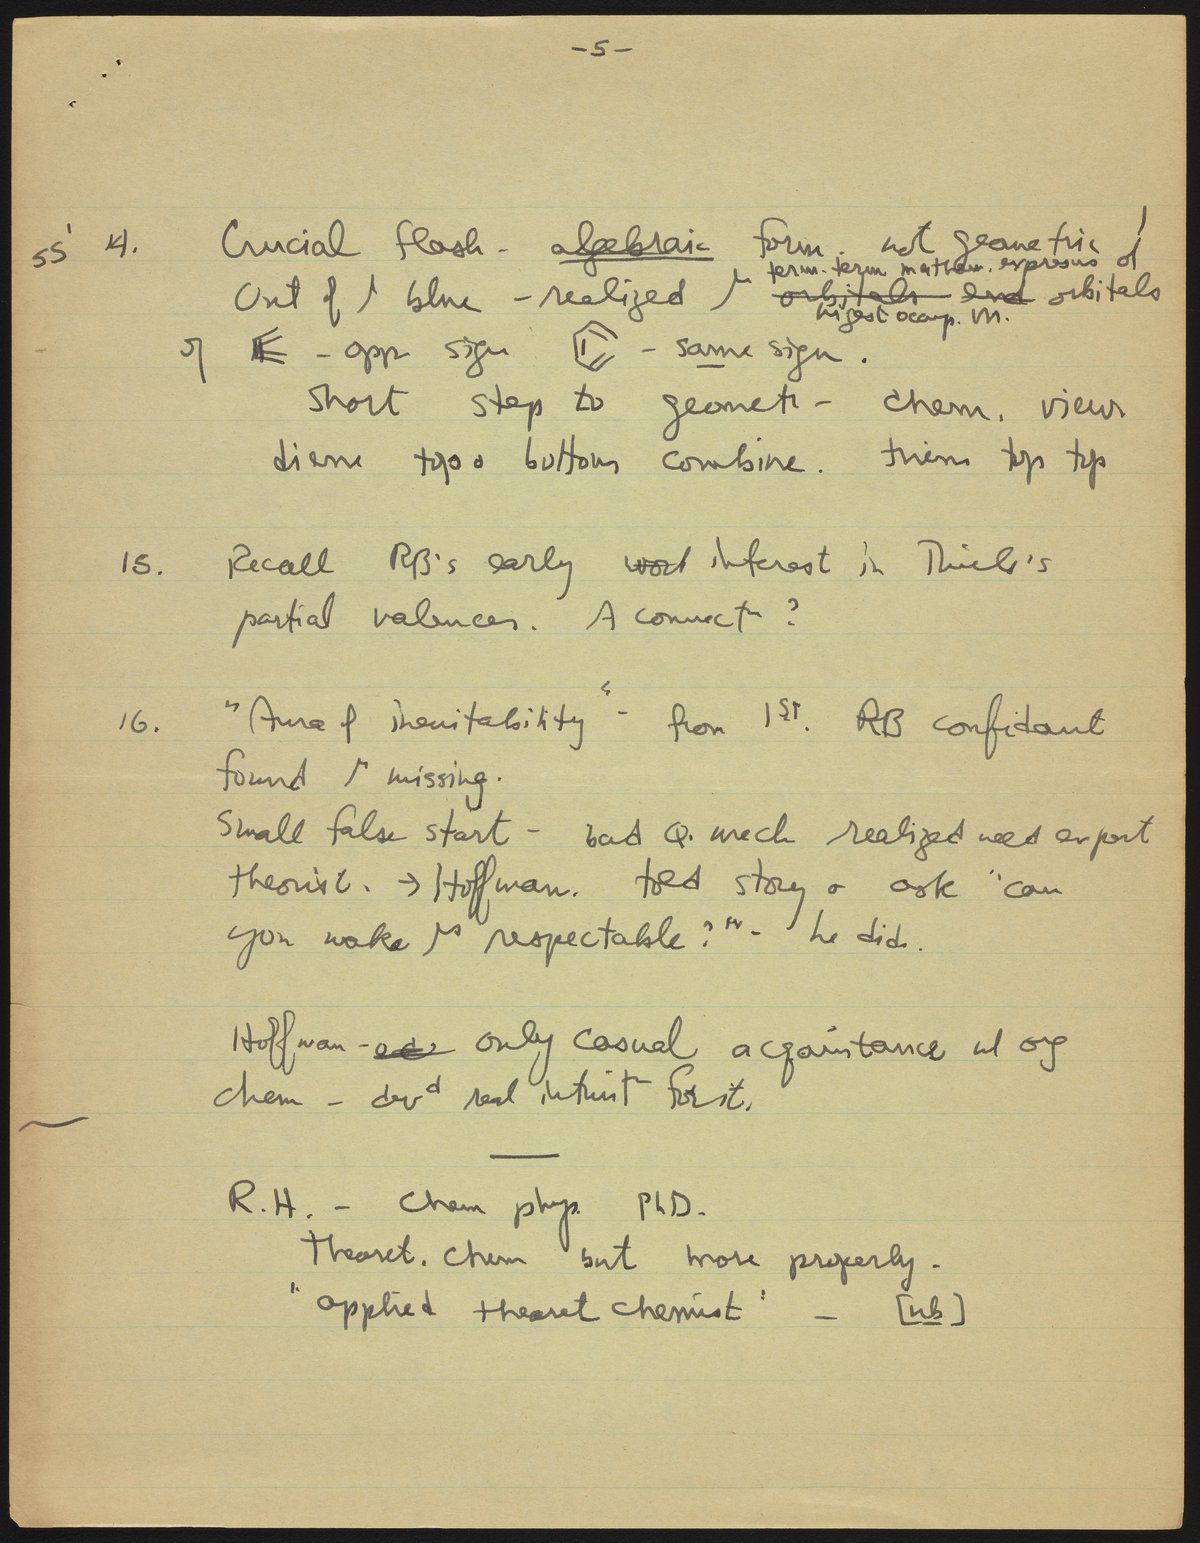 -5-
55' 14. Crucial flash - algebraic form. not geometric!
term. term mathem. expresns of
Out of blue - realized orbitals and orbitals
higest occup. m.
of - opp sign - same sign.
Short step to geometr - chem. view
diene top & bottom combine. triene top top
15. Recall RB's early work interest in Thiele's
partial valences. A connectn ?
16. "Aura of inevitability" - from 1st. RB confidant
found missing.
Small false start - bad Q. mech realized need expert
theorist. → Hoffman. told story & ask "can
you make respectable?" - he did.
Hoffman - only casual acqaintance w/ org
chem - devd real intuitn for it.
R.H. - Chem phys. PhD.
Theoret. Chem but more properly -
"applied theoret chemist' - [nb]